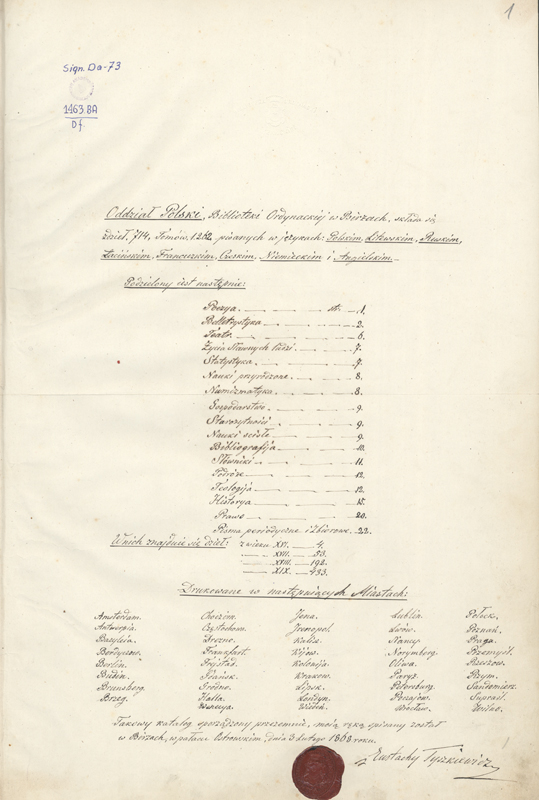 1
Sign. Da-73
1463 BA
Df.
Oddział Polski, Biblioteki Ordynackiej w Birżach, składa się
dzieł. 714, Tomów. 1.262, pisanych w językach: Polskim, Litewskim, Ruskim,
Łacińskim, Francuzkim, Czeskim, Niemieckim i Angielskim.
Podzielony jest następnie:
Poezya. str. 1.
Belletrystyka 2.
Teatr. 6.
Życia Sławnych Ludzi. 7.
Statystyka. 7.
Nauki przyrodzone. 8.
Numizmatyka 8.
Gospodarstwo. 9.
Starożytności 9.
Nauki ścisłe 9.
Bibliografija 10.
Słowniki 11.
Podróże 12.
Teologija 12.
Historya 15.
Prawo 20.
Pisma periodyczne i Zbiorowe. 22.
W nich znajduje się dzieł: z wieku XVI. 4.
XVII. 53.
XVIII. 192.
XIX. 433.
Drukowane w następujących Miastach:
Amsterdam. Chocżim. Jena. Lublin. Połock.
Antwerpia. Częstochow. Lwów. Poznań.
Bazyleia. Drezno. Kalisz. Nancy. Praga.
Berdyczow. Frankfurt. Kijów. Norymberg. Przemyśl.
Berlin. Kolonija. Oliwa. Rzeszow.
Budin. Gdańsk. Krakow. Paryż. Rzym.
Brunsberg. Grodno. Lipsk. Petersburg. Sandomierz.
Brzeg. Halla. Londyn. Poczajów. Supraśl.
Wiedeń. Wrocław. Wilno.
Takowy katalog sporządzony przezemnie, moią ręką spisany został
w Birżach, w pałacu Ostrowskim, dnia 3 Lutego 1868 roku.
Eustachy Tyszkiewicz